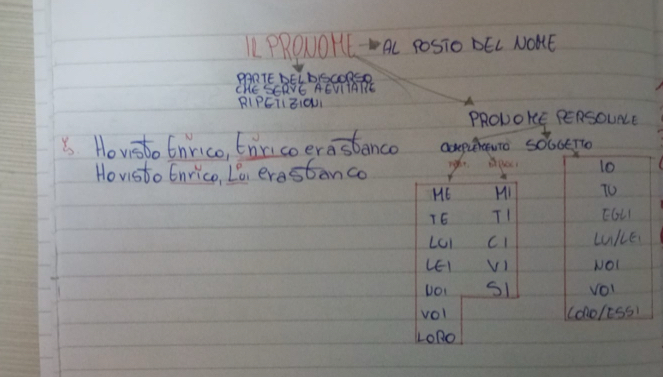 IL PRONOME → AL POSTO DEL NOME
PARTE DEL DISCORSO
CHE SERVE A EVITARE
RIPETIZIONI
PRONOME PERSONALE
COMPLEMENTO SOGGETTO
Ho visto Enrico, Enrico era stanco
Ho visto Enrico, Lui era stanco
ME MI
TE TI
LUI CI
LEI VI
NOI SI
VOI
LORO
IO
TU
EGLI
LUI/LEI
NOI
VOI
LORO/ESSI